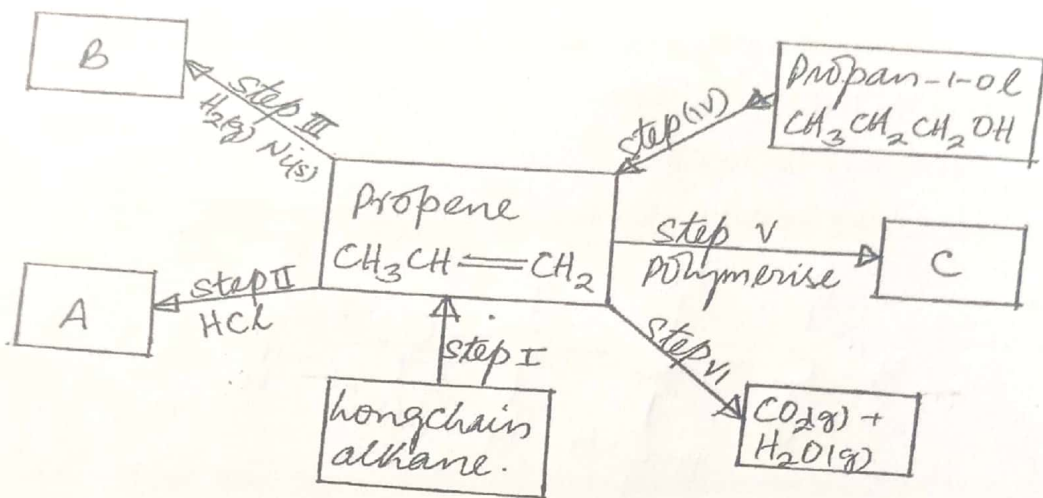 B
step III
H2(g) Ni(s)
Propan-1-ol
CH3CH2CH2OH
step (iv)
Propene
CH3CH=CH2
step V
Polymerise
C
step II
HCl
A
step I
Longchain
alkane.
step VI
CO2(g) +
H2O(g)